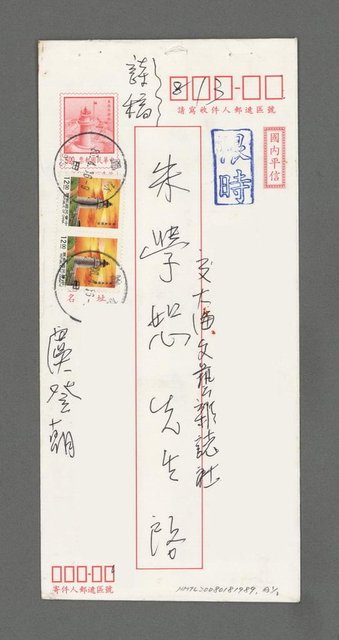 8/3
請寫收件人郵遞區號
國內平信
限時
詩稿
交大海文藝雜誌社
朱學恕先生啟
12.00
12.00
名 址
漠登朝
寄件人郵遞區號
NMTL20080181989